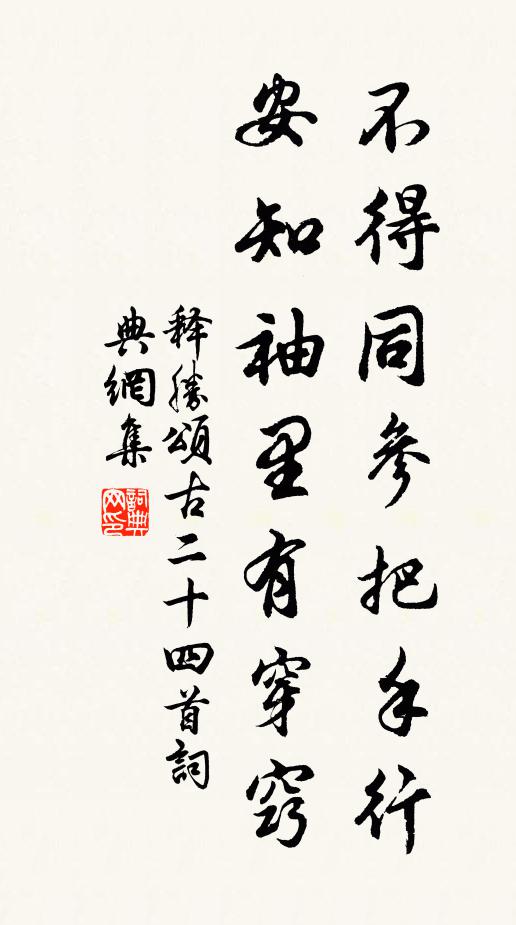 不得同參把手行
安知袖里有穿窮
释勝頌古二十四首詞
典網集
詞典网印